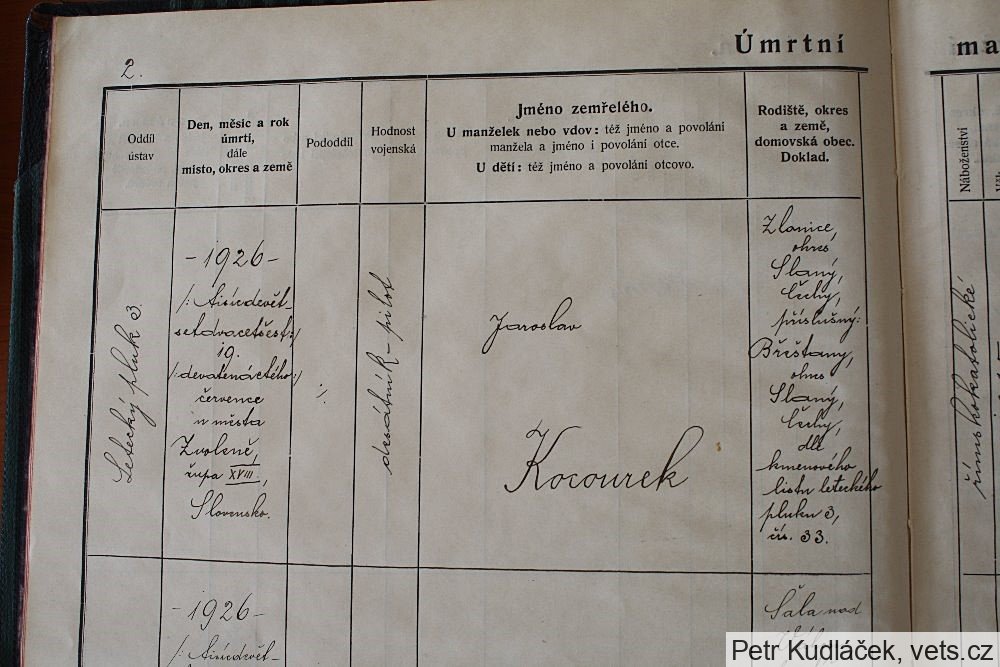 2.
Úmrtní
ma
Oddíl
ústav
Den, měsíc a rok
úmrtí,
dále
místo, okres a země
Pododdíl
Hodnost
vojenská
Jméno zemřelého.
U manželek nebo vdov: též jméno a povolání
manžela a jméno i povolání otce.
U dětí: též jméno a povolání otcovo.
Rodiště, okres
a země,
domovská obec.
Doklad.
Náboženství
Letecký pluk 3.
-1926-
/:tisícdevět-
setdvacetšest:/
19.
/:devatenáctého:/
července
u města
Zvoleně,
župa XVIII.,
Slovensko.
desátník-pilot
Jaroslav
Kocourek
Zlonice,
okres
Slaný,
Čechy,
příslušný:
Břešťany,
okres
Slaný,
Čechy,
dle
kmenového
listu leteckého
pluku 3,
čís. 33.
římskokatolické
-1926-
/:tisícdevět-
Šala nad
Petr Kudláček, vets.cz